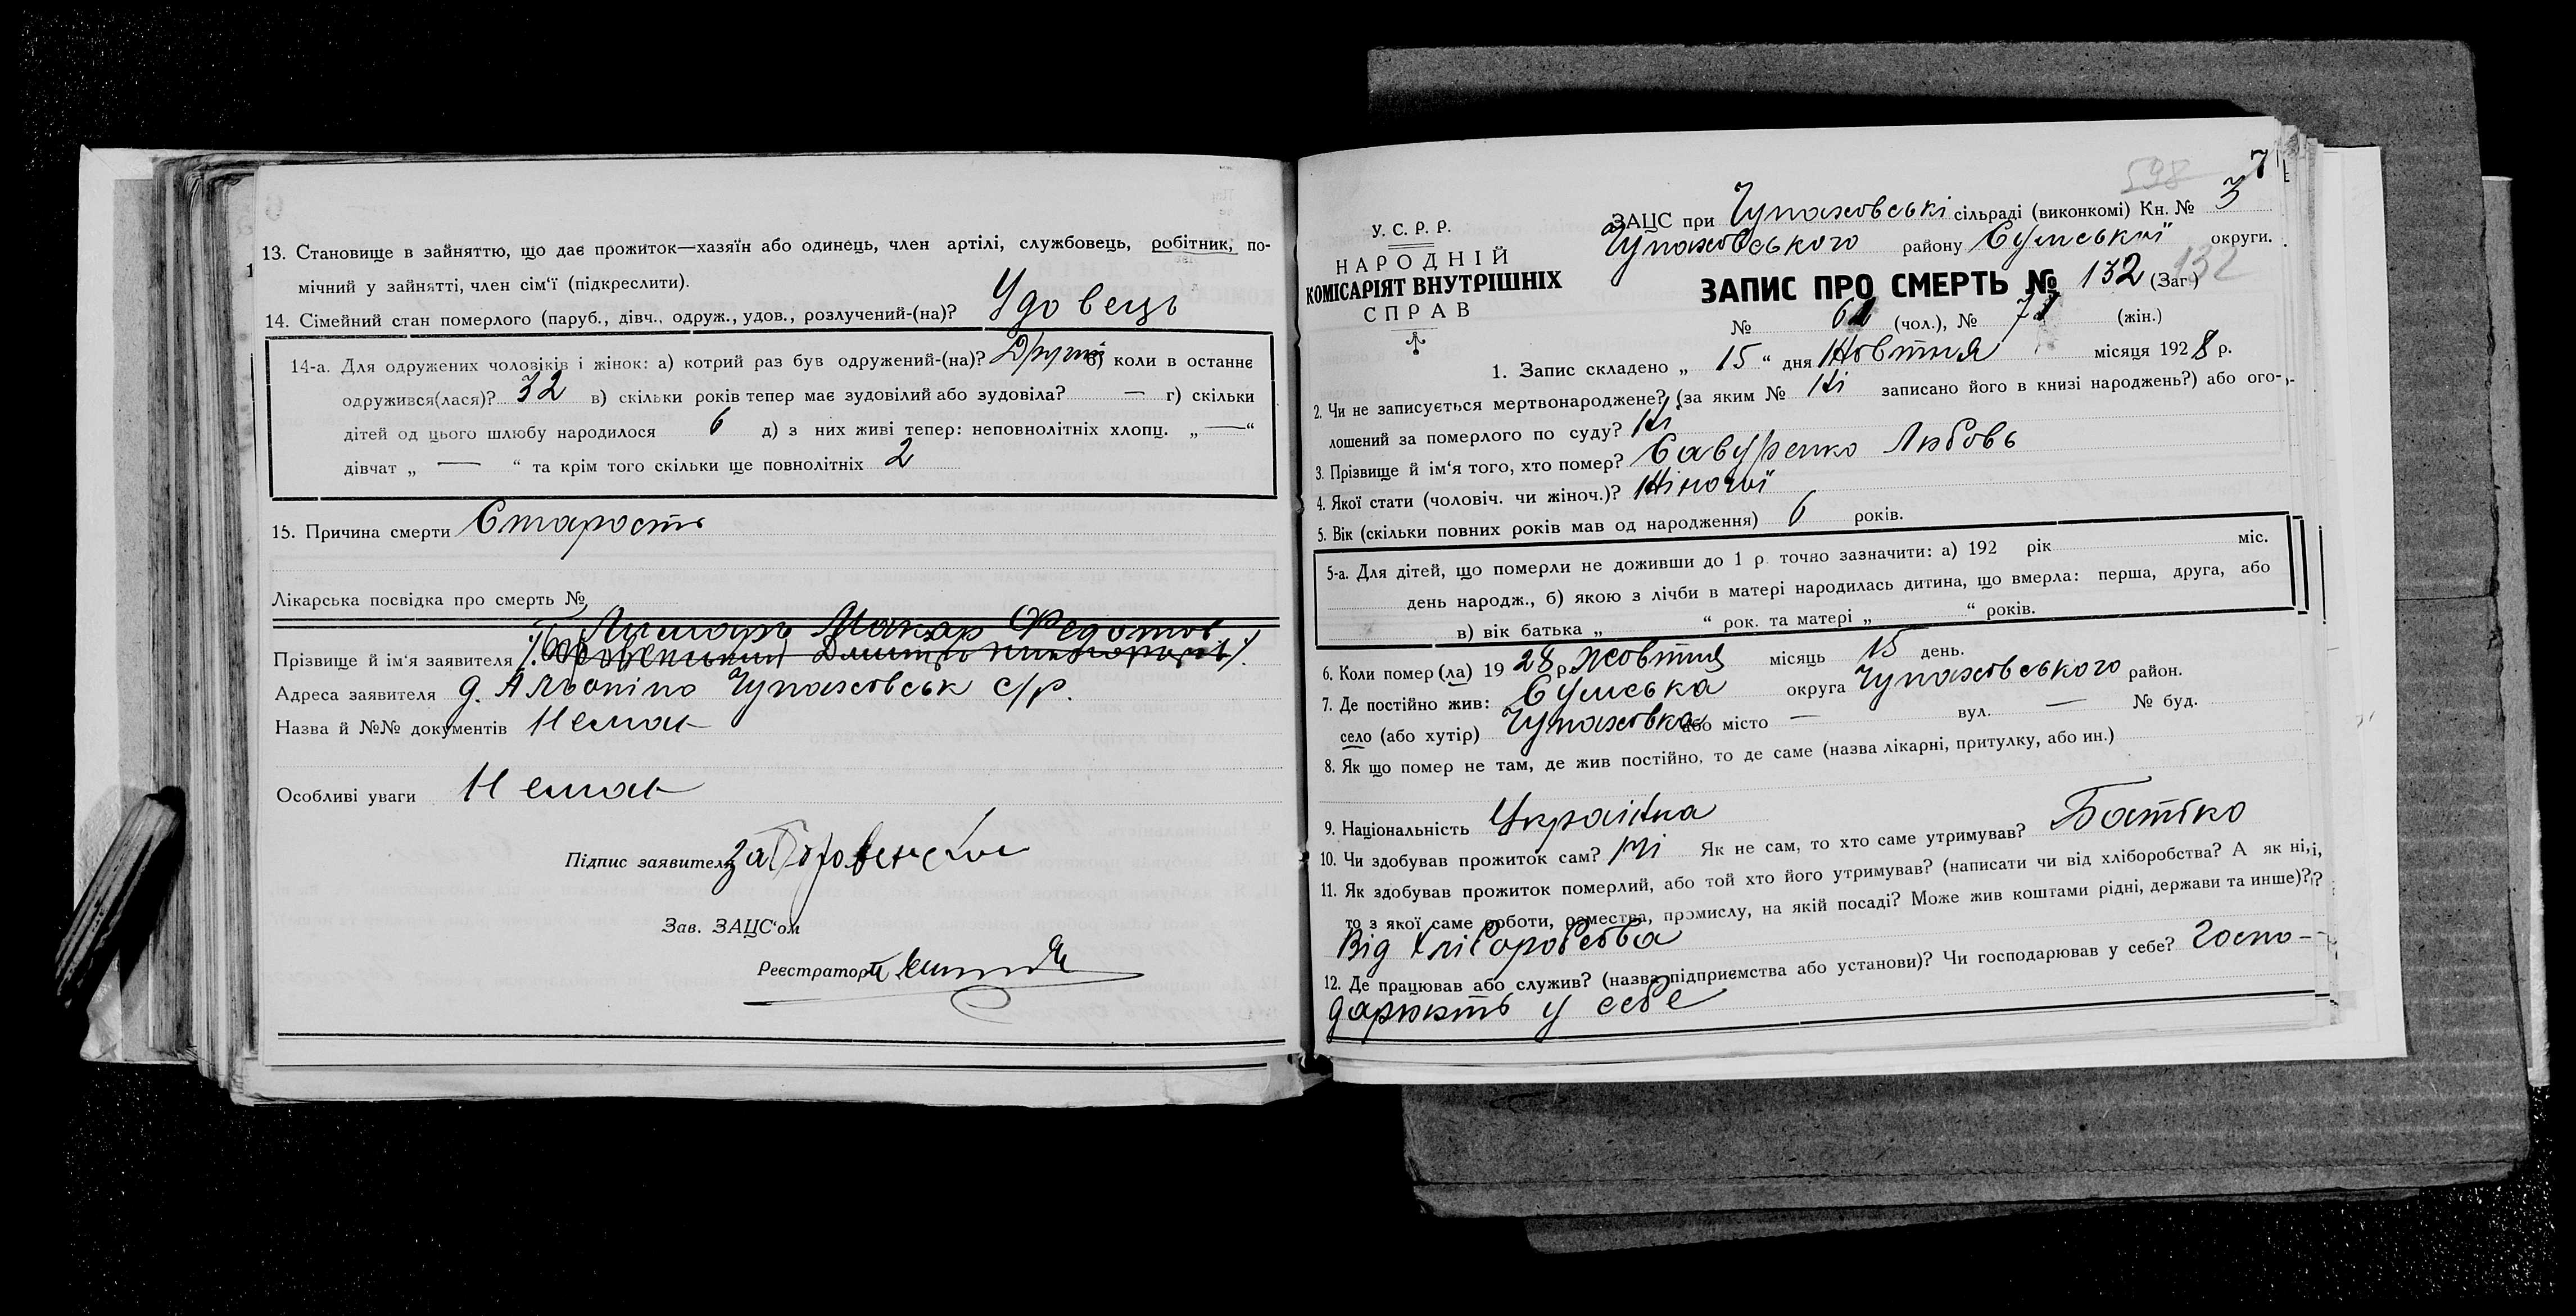 13. Становище в зайняттю, що дає прожиток—хазяїн або одинець, член артілі, службовець, робітник, по-
мічний у зайнятті, член сім'ї (підкреслити).
14. Сімейний стан померлого (паруб., дівч., одруж., удов., розлучений-(на)? Удовець
14-а. Для одружених чоловіків і жінок: а) котрий раз був одружений-(на)? Другий б) коли в останнє
одружився(лася)? 32 в) скільки років тепер має зудовілий або зудовіла? — г) скільки
дітей од цього шлюбу народилося 6 д) з них живі тепер: неповнолітніх хлопц. „ — “
дівчат „ — “ та крім того скільки ще повнолітніх 2
15. Причина смерти Старость
Лікарська посвідка про смерть №
Макар Федотов
Прізвище й ім'я заявителя
Адреса заявителя Чупаховськ с/р.
Назва й №№ документів Немає
Особливі уваги Немає
Підпис заявителя
Зав. ЗАЦС'ом
Реєстратор
598 7
У. С. Р. Р.
НАРОДНІЙ
КОМІСАРІЯТ ВНУТРІШНІХ
СПРАВ
ЗАЦС при Чупаховські сільраді (виконкомі) Кн. № 3
Чупаховського району Сумської округи.
ЗАПИС ПРО СМЕРТЬ № 132 (Заг.) 132
№ 61 (чол.), № 71 (жін.)
1. Запис складено „ 15 “ дня Жовтня місяця 1928 р.
2. Чи не записується мертвонароджене? (за яким № Ні записано його в книзі народжень?) або ого-
лошений за померлого по суду? Ні
3. Прізвище й ім'я того, хто помер? Савуренко Любовь
4. Якої стати (чоловіч. чи жіноч.)? Жіночої
5. Вік (скільки повних років мав од народження) 6 років.
5-а. Для дітей, що померли не доживши до 1 р. точно зазначити: а) 192 рік міс.
день народж., б) якою з лічби в матері народилась дитина, що вмерла: перша, друга, або
в) вік батька „ “ рок. та матері „ “ років.
6. Коли помер (ла) 1928 р. жовтня місяць 15 день.
7. Де постійно жив: Сумська округа Чупаховського район.
село (або хутір) Чупаховка або місто — вул. — № буд.
8. Як що помер не там, де жив постійно, то де саме (назва лікарні, притулку, або ин.)
9. Національність Українка
10. Чи здобував прожиток сам? Ні Як не сам, то хто саме утримував? Батько
11. Як здобував прожиток померлий, або той хто його утримував? (написати чи від хліборобства? А як ні,
то з якої саме роботи, ремества, промислу, на якій посаді? Може жив коштами рідні, держави та инше)?
Від хліборобства
12. Де працював або служив? (назва підприємства або установи)? Чи господарював у себе? Госпо-
дарюють у себе